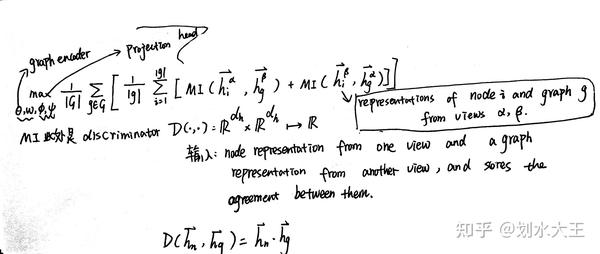 graph encoder
projection head
max θ,ω,φ,ψ 1/|G| Σ g∈G [ 1/|g| Σ i=1 |g| [ MI( h⃗ᵢ^α , h⃗_g^β ) + MI( h⃗ᵢ^β , h⃗_g^α ) ] ]
representations of node i and graph g
from views α, β.
MI 此处是 discriminator D(·,·) = ℝ^dh × ℝ^dh ↦ ℝ
输入: node representation from one view and a graph
representation from another view, and sores the
agreement between them.
D( h⃗n , h⃗g ) = h⃗n · h⃗g
知乎 @划水大王